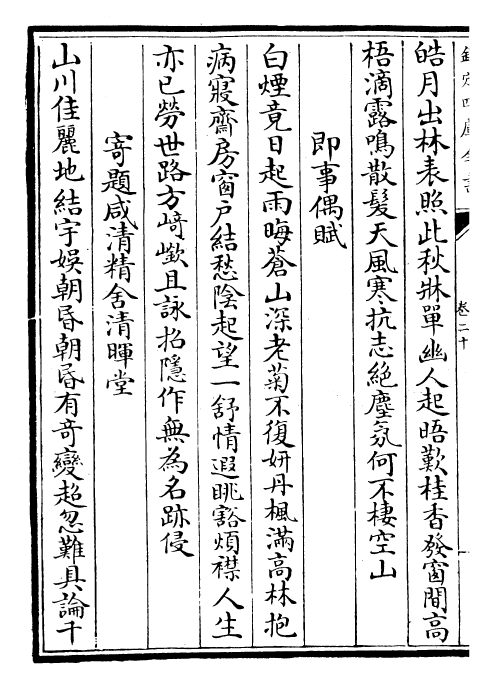 欽定四庫全書
卷二十
皓月出林表照此秋牀單幽人起晤歎桂香發窗間高
梧滴露鳴散髮天風寒抗志絶塵氛何不棲空山
即事偶賦
白煙竟日起雨晦蒼山深老菊不復妍丹楓滿高林抱
病寢齋房窗户結愁陰起望一舒情遐眺豁煩襟人生
亦已勞世路方﨑嶔且詠招隱作無為名跡侵
寄題咸清精舍清暉堂
山川佳麗地結宇娱朝昏朝昏有竒變超忽難具論千